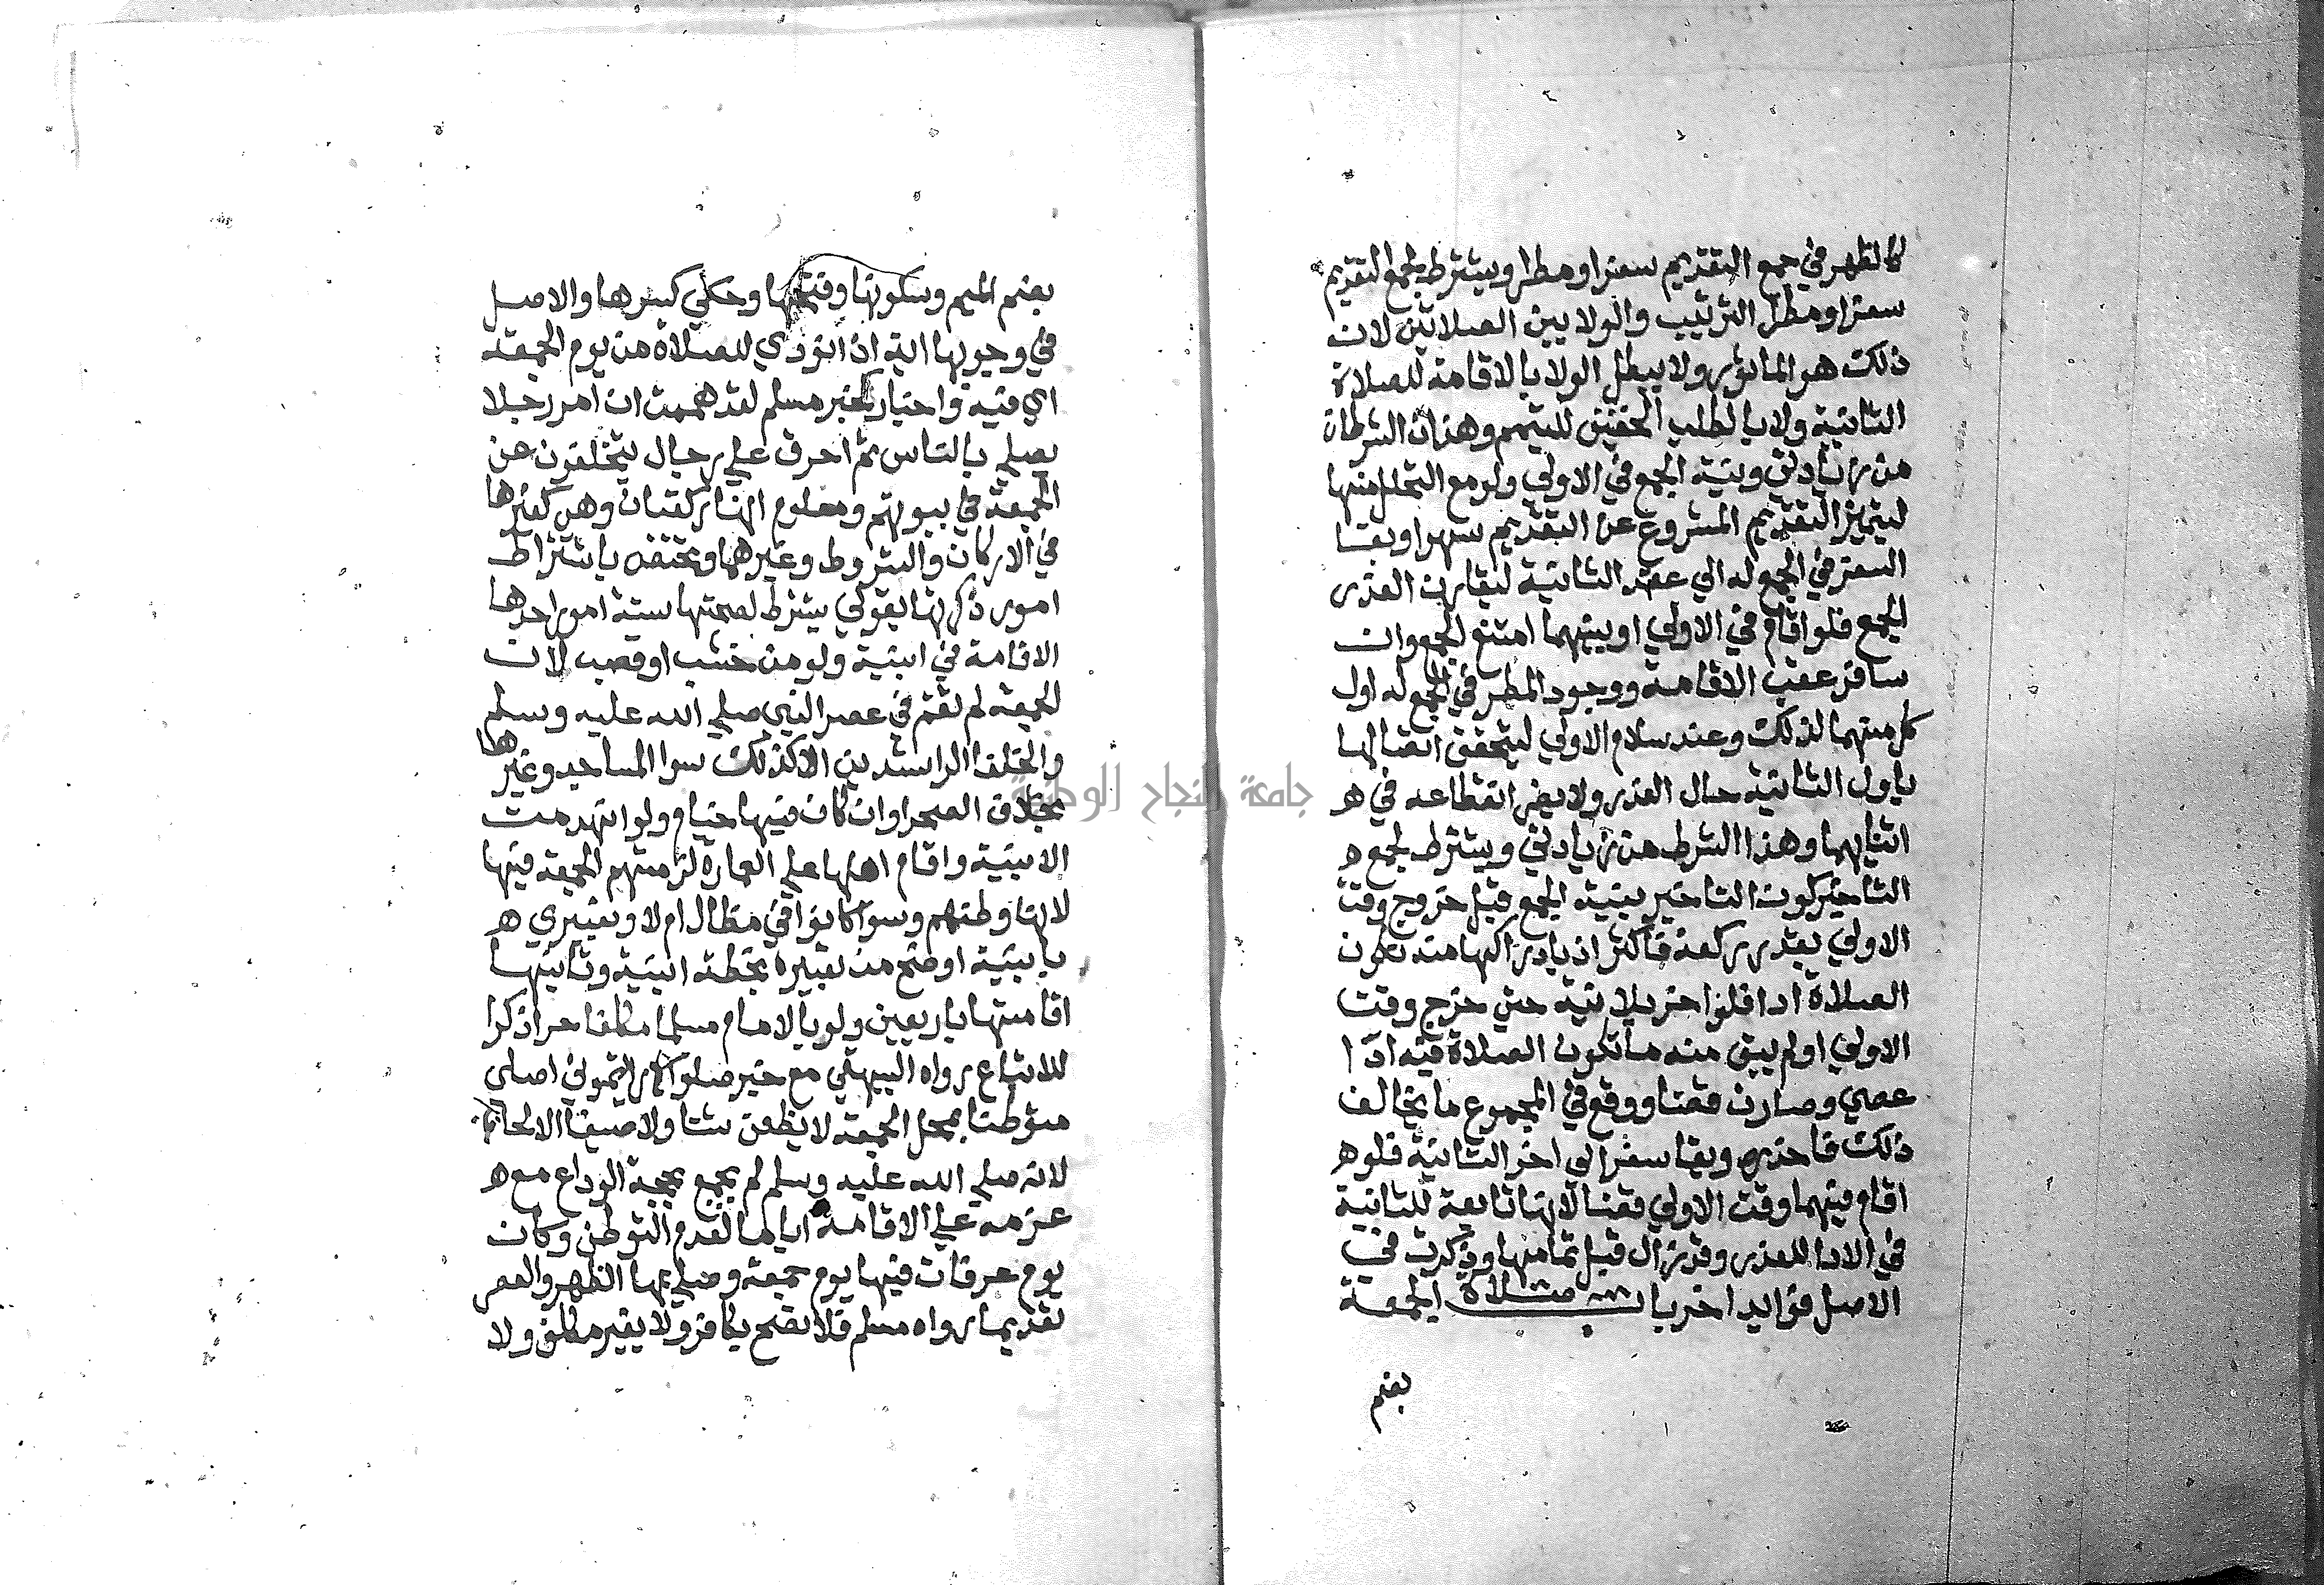 كالظهر في جمع التقديم سفرا ومطرا ويشترط لجمع التقديم
سفرا ومطرا الترتيب والولا بين الصلاتين لان
ذلك هو الماثور ولا يبطل الولا بالاقامة للصلاة
الثانية ولا بالطلب الخفيف للتيمم وهذان الشرطان
من زيادتي ونية الجمع في الاولي ولو مع التحلل منها
ليتميز التقديم المشروع عن التقديم سهوا وبقا
السفر في الجمع له الي عقد الثانية ليقارن العذر
الجمع فلو اقام في الاولي او بينهما امتنع الجمع وان
سافر عقب الاقامة ووجود المطر في الجمع له اول
كل منهما لذلك وعند سلام الاولي ليتحقق اتصالها
باول الثانية حال العذر ولا يضر انقطاعه في ه
اثنايهما وهذا الشرط من زيادتي ويشترط لجمع ه
التاخير كون التاخير بنية الجمع قبل خروج وقت
الاولي بقدر ركعة فاكثر اذ بادراكها منه تكون
الصلاة ادا فلو اخر بلا نية حتي خرج وقت
الاولي او لم يبق منه ما تكون الصلاة فيه ادا
عصي وصارت قضا ووقع في المجموع ما يخالف
ذلك فاحذره وبقا سفر الي اخر الثانية فلو ه
اقام فيهما وقت الاولي قضا لانها تابعة للثانية
في الادا للعذر وقد زال قبل تمامها وذكرت في
الاصل فوايد اخر باب صلاة الجمعة
بضم
بضم الميم وسكونها وفتحها وحكي كسرها والاصل
في وجوبها اية اذا نودي للصلاة من يوم الجمعة
اي فيه واخبار كخبر مسلم لقد هممت ان امر رجلا
يصلي بالناس ثم احرق علي رجال يتخلفون عن
الجمعة في بيوتهم ومعلوم انها ركعتان وهي كغيرها
في الاركان والشروط وغيرهما وتختص باشتراط
امور ذكرتها بقولي يشترط لصحتها ستة امور احدها
الاقامة في ابنية ولو من خشب او قصب لان
الجمعة لم تقم في عصر النبي صلي الله عليه وسلم
والخلفا الراشدين الا كذلك سوا المساجد وغيرها
بخلاف الصحرا وان كان فيها خيام ولو انهدمت
الابنية واقام اهلها علي العمارة لزمتهم الجمعة فيها
لانها وطنهم وسوا كانوا في مظال ام لا وتعبيري ه
بابنية اوضح من تعبيره بخطة ابنية وثانيها
اقامتها باربعين ولو بالامام مسلما مكلفا حرا ذكرا
للاتباع رواه البيهقي مع خبر صلوا كما رايتموني اصلي
متوطنا بمحل الجمعة لا يظعن شتا ولا صيفا الا لحاجة
لانه صلي الله عليه وسلم لم يجمع بحجة الوداع مع ه
عزمه علي الاقامة اياما لعدم التوطن وكان
يوم عرفات فيها يوم جمعة وصلي بها الظهر والعصر
تقديما رواه مسلم فلا تصح بكافر ولا بغير مكلف ولا
جامعة النجاح الوطنية